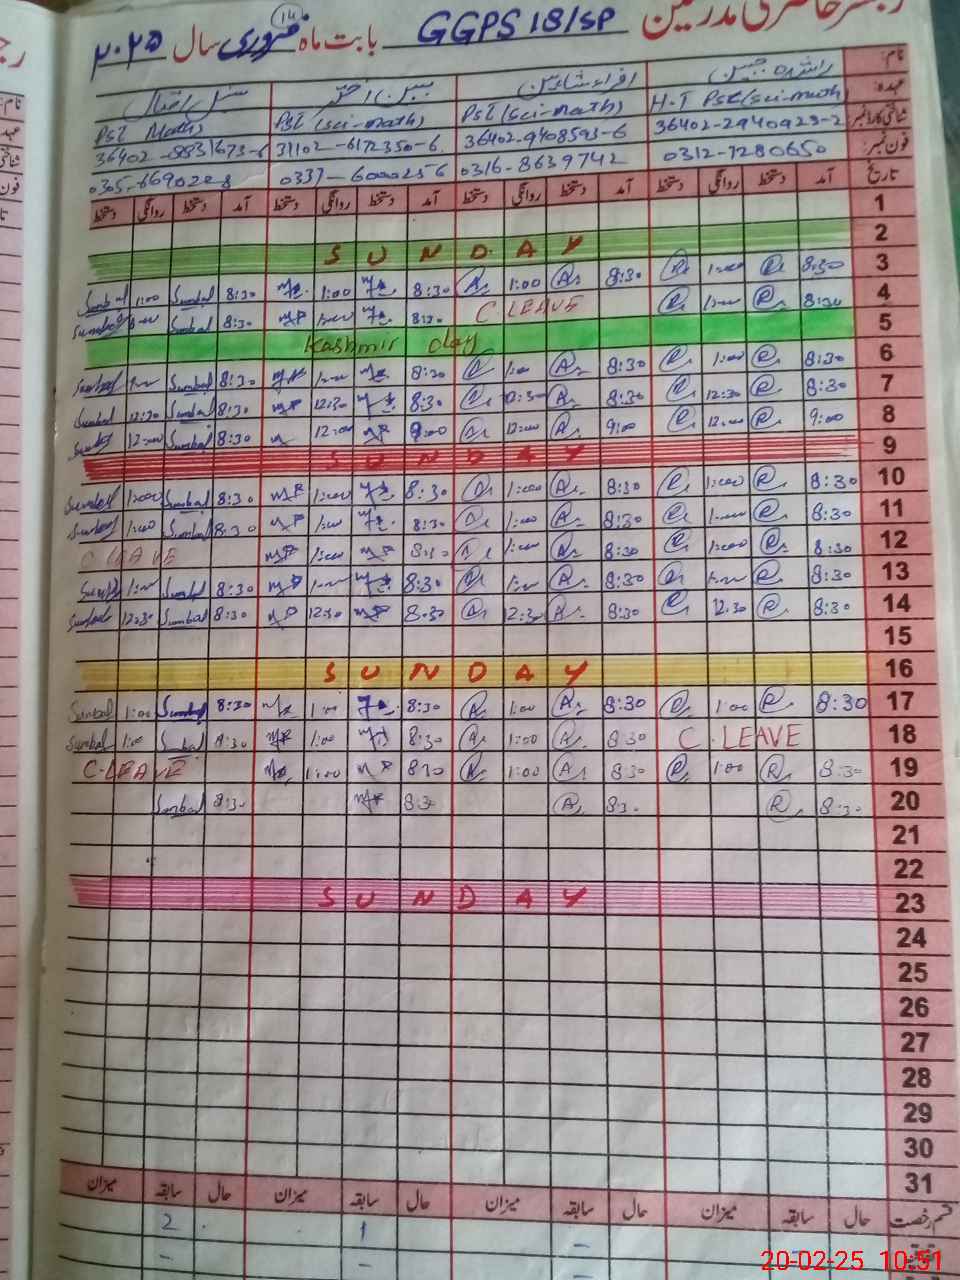 رجسٹر حاضری مدرسین GGPS 18/SP بابت ماہ فروری سال ۲۰۲۵
14
نام: راشدہ جبین
عہدہ: H.T PST (sci-math) PST (sci-math) PST (sci-math) PST Math)
شناختی کارڈ نمبر 36402-2940923-2 36402-9408593-6 31102-6172350-6 36402-8831673-6
فون نمبر: 0312-7280650 0316-8639742 0337-6000256 0305-6690228
تاریخ آمد دستخط روانگی دستخط آمد دستخط روانگی دستخط آمد دستخط روانگی دستخط آمد دستخط روانگی دستخط
1
2 SUNDAY
3 8:30 R 1:00 R 8:30 A 1:00 A 8:30 1:00 8:30 Sumbal 1:00 Sumbal
4 8:30 R 1:00 R C.LEAVE 8:30 1:00 8:30 Sumbal 1:00 Sumbal
5 Kashmir day
6 8:30 R 1:00 R 8:30 A 1:00 A 8:30 1:00 8:30 Sumbal 1:00 Sumbal
7 8:30 R 12:30 R 8:30 A 12:30 A 8:30 12:30 8:30 Sumbal 12:30 Sumbal
8 9:00 R 12:00 R 9:00 A 12:00 A 9:00 12:00 8:30 Sumbal 12:00 Sumbal
9 SUNDAY
10 8:30 R 1:00 R 8:30 A 1:00 A 8:30 1:00 8:30 Sumbal 1:00 Sumbal
11 8:30 R 1:00 R 8:30 A 1:00 A 8:30 1:00 8:30 Sumbal 1:00 Sumbal
12 8:30 R 1:00 R 8:30 A 1:00 A 8:30 1:00 C LEAVE
13 8:30 R 1:00 R 8:30 A 1:00 A 8:30 1:00 8:30 Sumbal 1:00 Sumbal
14 8:30 R 12:30 R 8:30 A 12:30 A 8:30 12:30 8:30 Sumbal 12:30 Sumbal
15
16 SUNDAY
17 8:30 R 1:00 R 8:30 A 1:00 A 8:30 1:00 8:30 Sumbal 1:00 Sumbal
18 C.LEAVE 8:30 A 1:00 A 8:30 1:00 8:30 Sumbal 1:00 Sumbal
19 8:30 R 1:00 R 8:30 A 1:00 A 8:30 1:00 C.LEAVE
20 8:30 R 8:30 A 8:30 8:30 Sumbal
21
22
23 SUNDAY
24
25
26
27
28
29
30
31
قسم رخصت حال سابقہ میزان حال سابقہ میزان حال سابقہ میزان حال سابقہ میزان
- 1 2
20-02-25 10:51